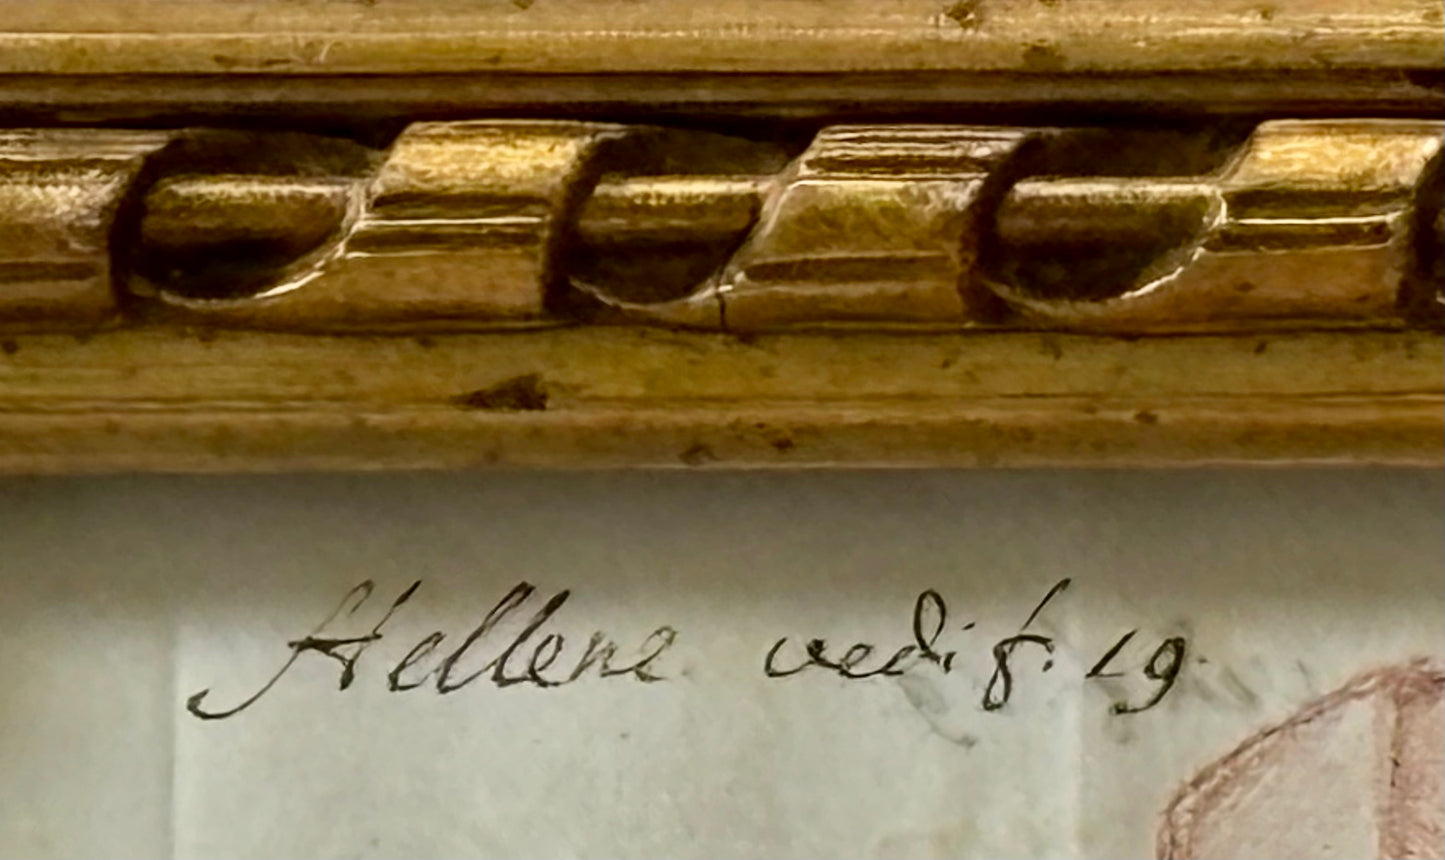 Hellene vedi f. 19.